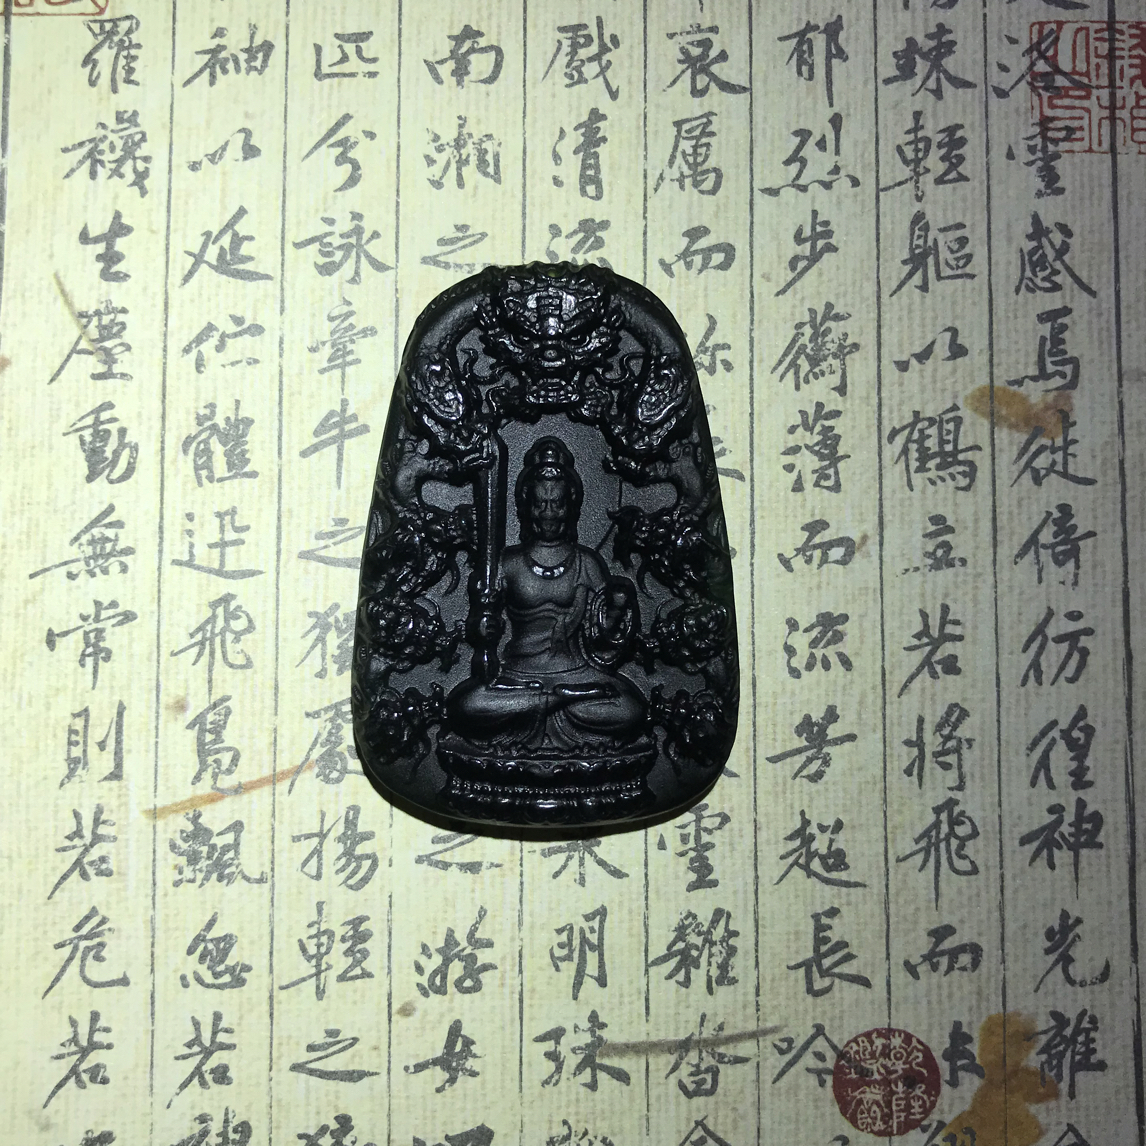 洛靈感焉徙倚彷徨神光離
竦輕軀以鶴立若將飛而
郁烈步蘅薄而流芳超長吟
哀厲而弥靈雜沓
戲清流采明珠
南湘之之游女
匹兮詠牽牛之獨處揚輕之
袖以延佇體迅飛鳧飄忽若神
羅襪生塵動無常則若危若
乾隆鑑賞